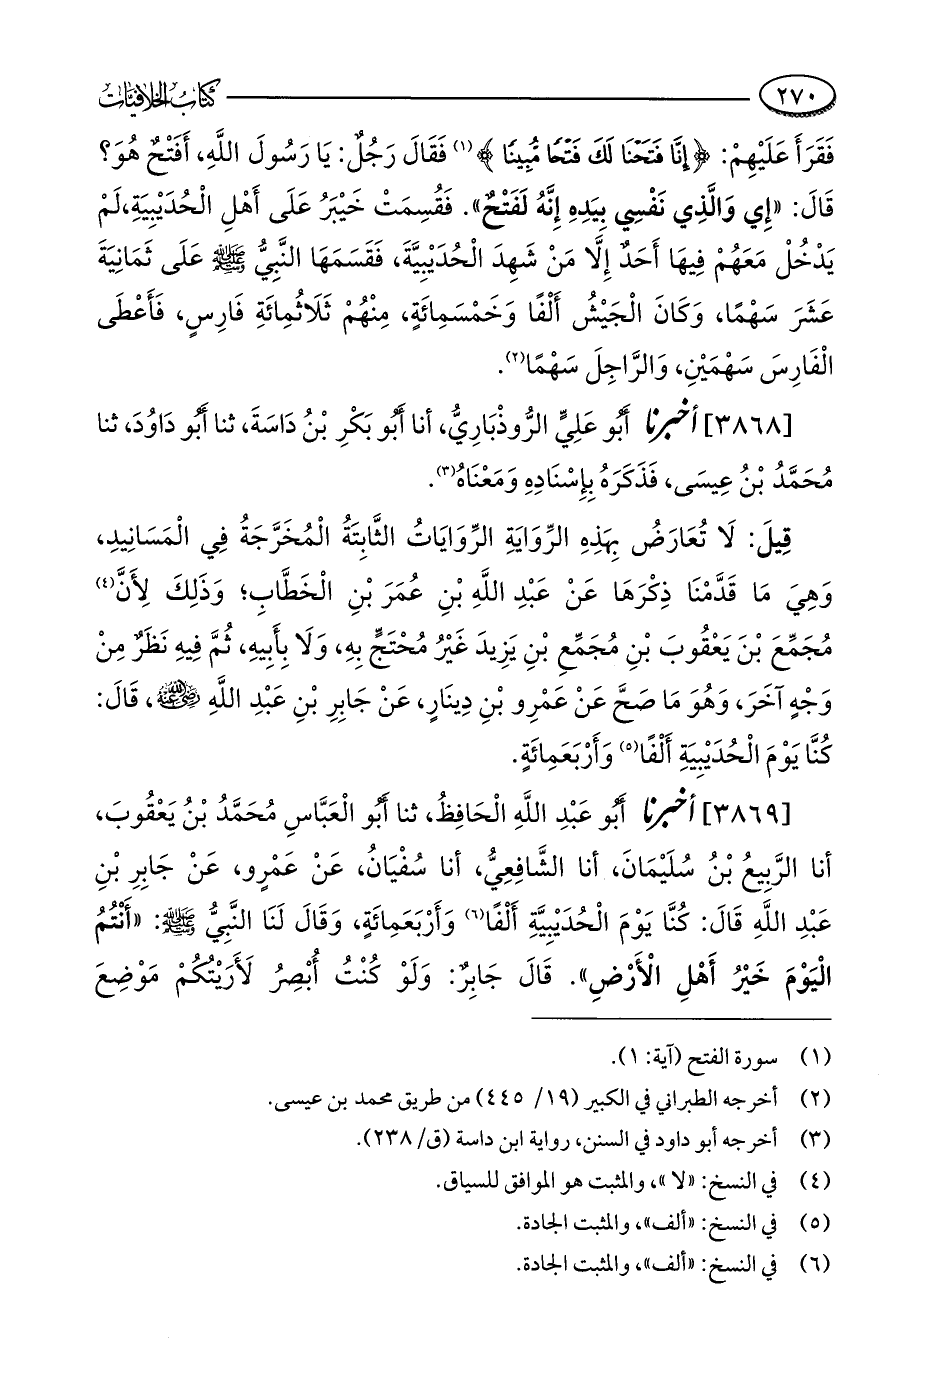 ٢٧٠ كتاب الخلافيات
فَقَرَأَ عَلَيْهِمْ: ﴿إِنَّا فَتَحْنَا لَكَ فَتْحًا مُّبِينًا﴾(١) فَقَالَ رَجُلٌ: يَا رَسُولَ اللَّهِ، أَفَتْحٌ هُوَ؟
قَالَ: «إِي وَالَّذِي نَفْسِي بِيَدِهِ إِنَّهُ لَفَتْحٌ». فَقُسِمَتْ خَيْبَرُ عَلَى أَهْلِ الْحُدَيْبِيَةِ،لَمْ
يَدْخُلْ مَعَهُمْ فِيهَا أَحَدٌ إِلَّا مَنْ شَهِدَ الْحُدَيْبِيَّةَ، فَقَسَمَهَا النَّبِيُّ ﷺ عَلَى ثَمَانِيَةَ
عَشَرَ سَهْمًا، وَكَانَ الْجَيْشُ أَلْفًا وَخَمْسَمِائَةٍ، مِنْهُمْ ثَلَاثُمِائَةِ فَارِسٍ، فَأَعْطَى
الْفَارِسَ سَهْمَيْنِ، وَالرَّاجِلَ سَهْمًا(٢).
[٣٨٦٨] أخبرنا أَبُو عَلِيٍّ الرُّوذْبَارِيُّ، أنا أَبُو بَكْرِ بْنُ دَاسَةَ، ثنا أَبُو دَاوُدَ، ثنا
مُحَمَّدُ بْنُ عِيسَى، فَذَكَرَهُ بِإِسْنَادِهِ وَمَعْنَاهُ(٣).
قِيلَ: لَا تُعَارَضُ بِهَذِهِ الرِّوَايَةِ الرِّوَايَاتُ الثَّابِتَةُ الْمُخَرَّجَةُ فِي الْمَسَانِيدِ،
وَهِيَ مَا قَدَّمْنَا ذِكْرَهَا عَنْ عَبْدِ اللَّهِ بْنِ عُمَرَ بْنِ الْخَطَّابِ؛ وَذَلِكَ لِأَنَّ(٤)
مُجَمِّعَ بْنَ يَعْقُوبَ بْنِ مُجَمِّعِ بْنِ يَزِيدَ غَيْرُ مُحْتَجٍّ بِهِ، وَلَا بِأَبِيهِ، ثُمَّ فِيهِ نَظَرٌ مِنْ
وَجْهٍ آخَرَ، وَهُوَ مَا صَحَّ عَنْ عَمْرِو بْنِ دِينَارٍ، عَنْ جَابِرِ بْنِ عَبْدِ اللَّهِ رضي الله عنه، قَالَ:
كُنَّا يَوْمَ الْحُدَيْبِيَةِ أَلْفًا(٥) وَأَرْبَعَمِائَةٍ.
[٣٨٦٩] أخبرنا أَبُو عَبْدِ اللَّهِ الْحَافِظُ، ثنا أَبُو الْعَبَّاسِ مُحَمَّدُ بْنُ يَعْقُوبَ،
أنا الرَّبِيعُ بْنُ سُلَيْمَانَ، أنا الشَّافِعِيُّ، أنا سُفْيَانُ، عَنْ عَمْرٍو، عَنْ جَابِرِ بْنِ
عَبْدِ اللَّهِ قَالَ: كُنَّا يَوْمَ الْحُدَيْبِيَّةِ أَلْفًا(٦) وَأَرْبَعَمِائَةٍ، وَقَالَ لَنَا النَّبِيُّ ﷺ: «أَنْتُمُ
الْيَوْمَ خَيْرُ أَهْلِ الْأَرْضِ». قَالَ جَابِرٌ: وَلَوْ كُنْتُ أُبْصِرُ لَأَرَيْتُكُمْ مَوْضِعَ
(١) سورة الفتح (آية: ١).
(٢) أخرجه الطبراني في الكبير (١٩/ ٤٤٥) من طريق محمد بن عيسى.
(٣) أخرجه أبو داود في السنن، رواية ابن داسة (ق/ ٢٣٨).
(٤) في النسخ: «لا»، والمثبت هو الموافق للسياق.
(٥) في النسخ: «ألف»، والمثبت الجادة.
(٦) في النسخ: «ألف»، والمثبت الجادة.